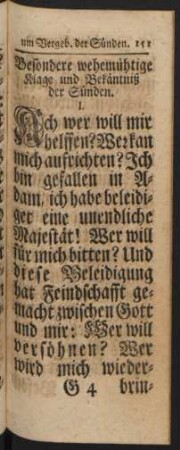 um Vergeb. der Sünden. 151
Besondere wehemühtige
Klage und Bekäntniß
der Sünden.
I.
Ach wer will mir
helffen? Wer kan
mich aufrichten? Ich
bin gefallen in A-
dam, ich habe beleidi-
get eine unendliche
Majestät! Wer will
für mich bitten? Und
diese Beleidigung
hat Feindschafft ge-
macht zwischen Gott
und mir: Wer will
versöhnen? Wer
wird mich wieder-
G 4 brin-